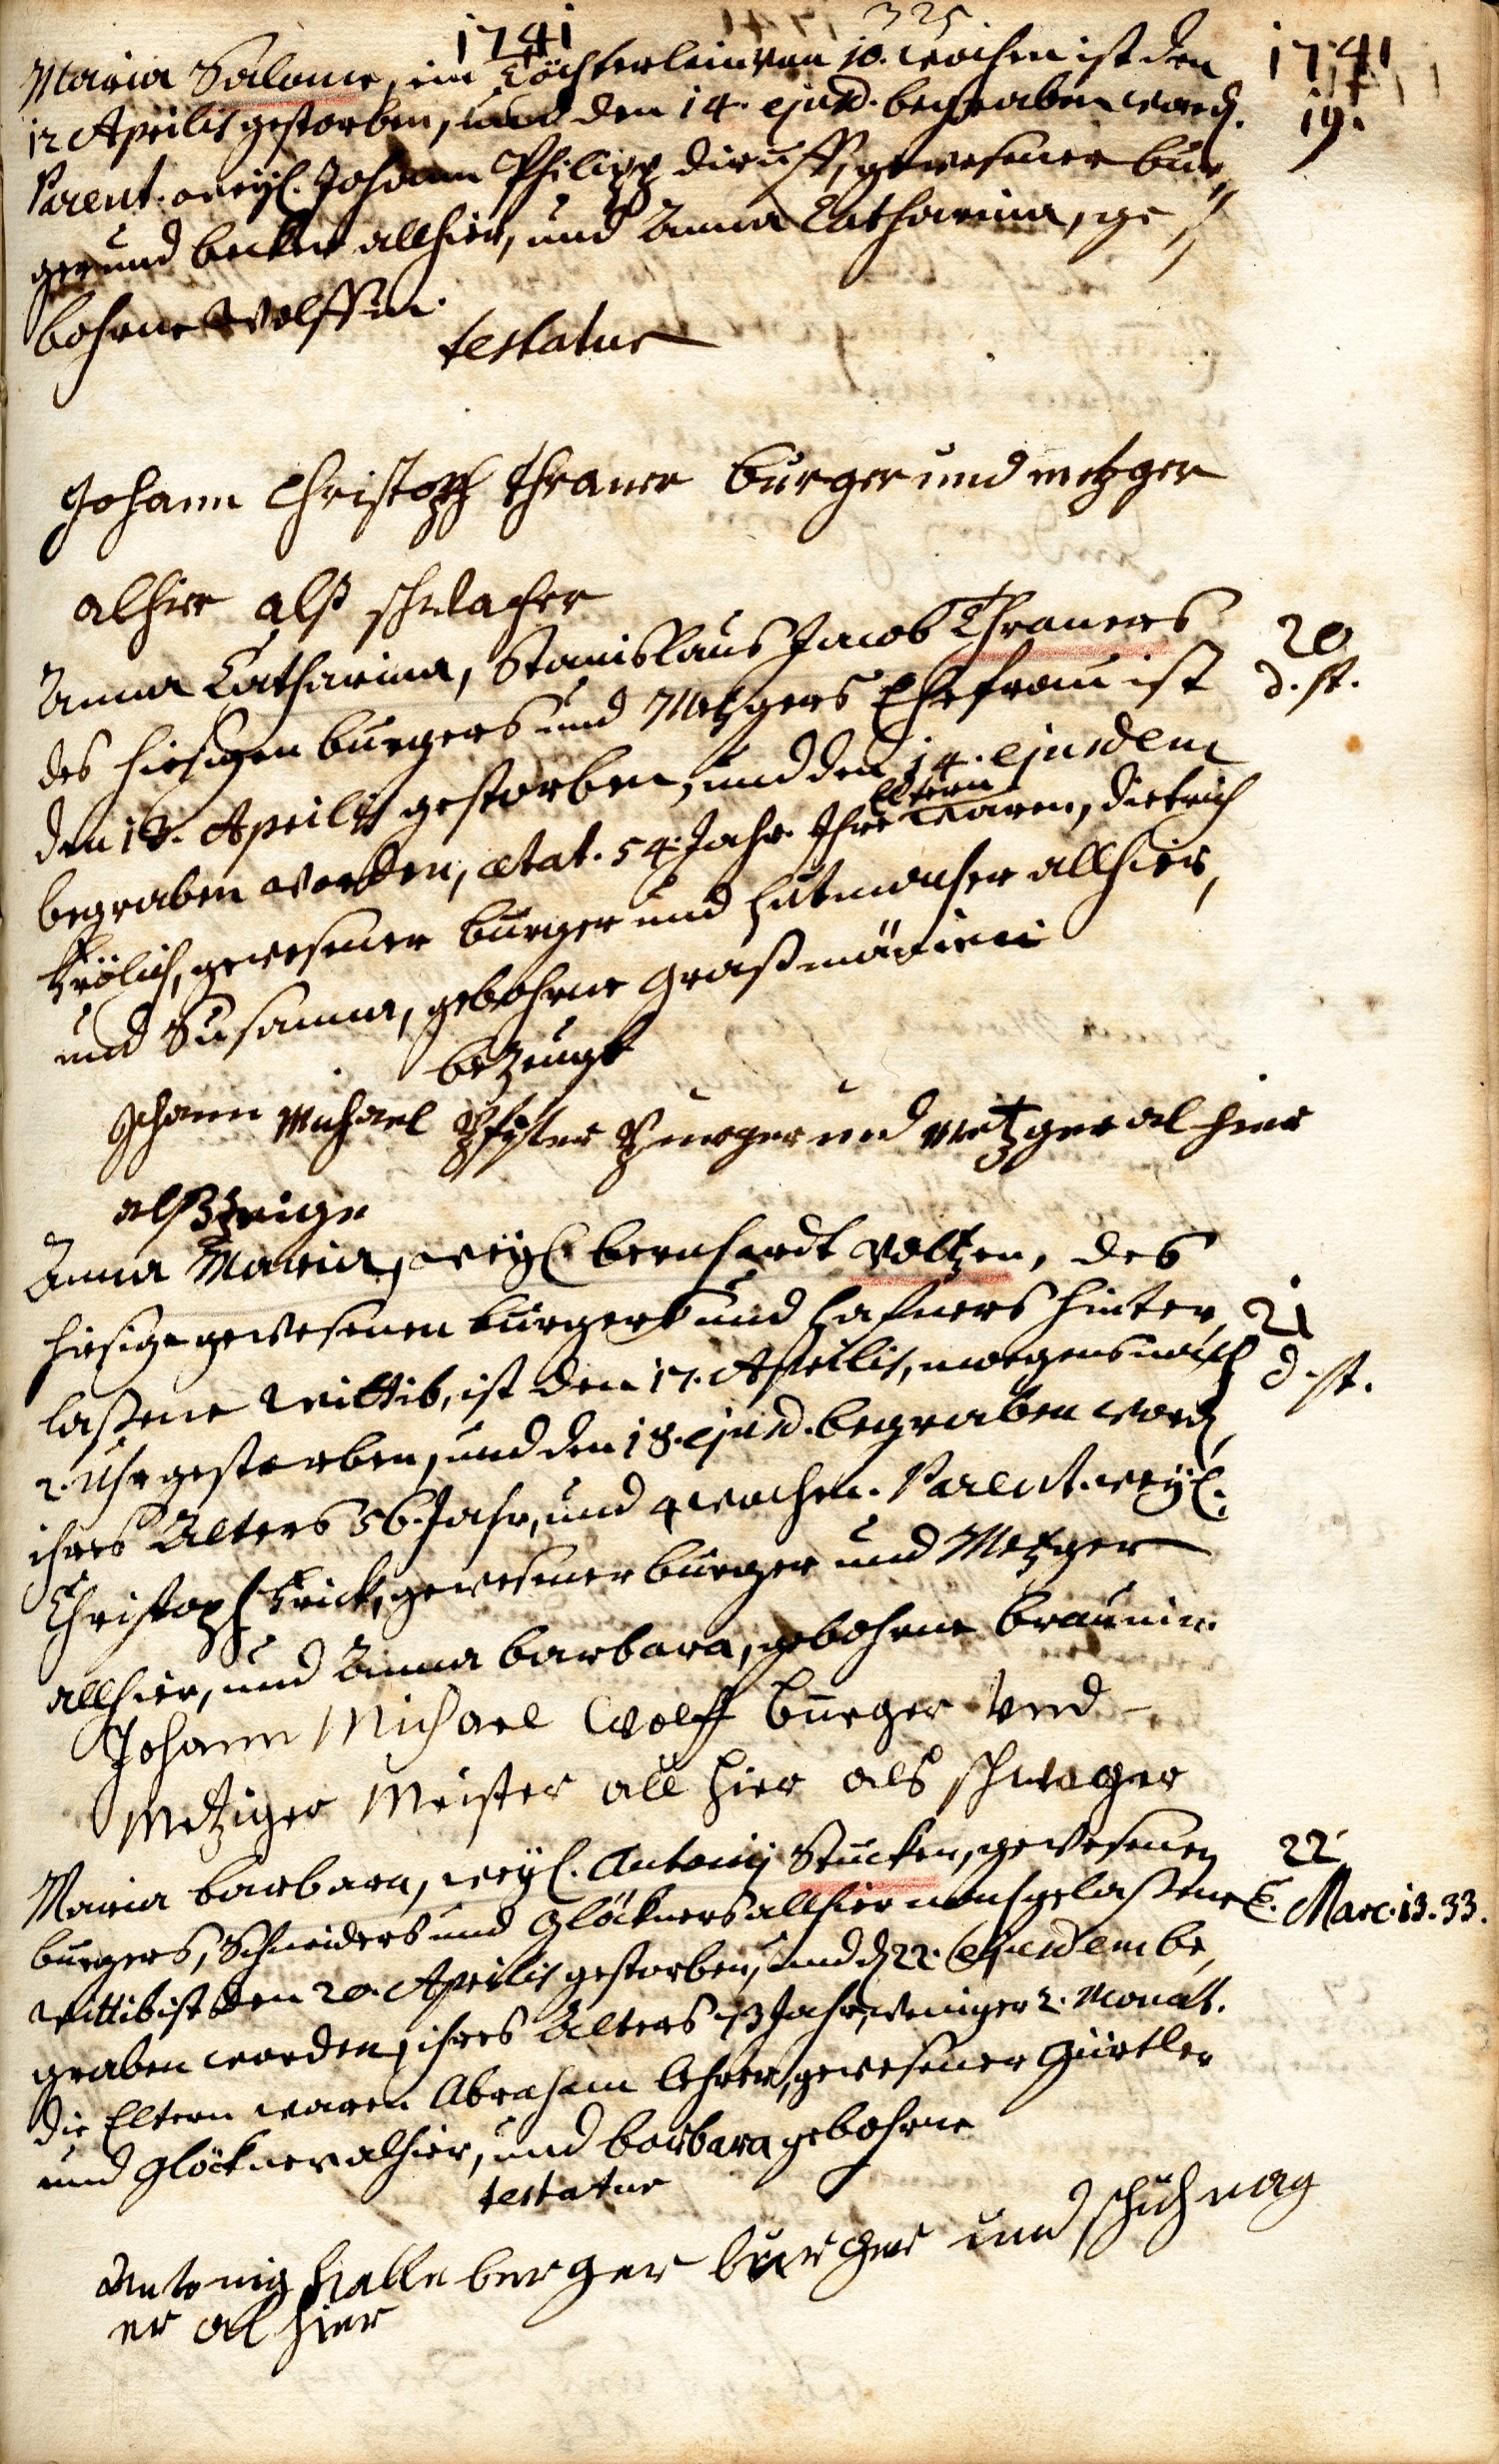 1741
325
1741
Maria Salome, ein Töchterlein von 10. wochen ist den
19.
12 Aprilis gestorben, und den 14. ejusd. begraben word.
Parent. weyl. Johann Philipp Diruff, gewesener bur-
ger und becker allhier, und Anna Catharina, ge-
bohrne Wolffin.
testatur
Johann Christoph Thraner burger und metzger
alhier alß schwacher
Anna Catharina, Stanislaus Jacob Thraners
20
des hiesigen burgers und Metzgers Ehefrau ist
d. st.
den 13. Aprilis gestorben, und den 14. ejusdem
begraben worden, ætat. 54. Jahr. Ihre Eltern waren, Dietrich
Frölich, gewesener burger und hutmacher allhier,
und Susanna, gebohrne Graßmäirin
bezeugt
Johann Michael Pfister Burger und Metzger alhier
alß Zeuge
Anna Maria, weyl. bernhardt Voltzen, des
hiesige gewesenen burgers und hafners hinter-
21
laßene Wittib, ist den 17. Aprilis, morgens nach
d. st.
2. Uhr gestorben, und den 18. ejusd. begraben word,
ihres Alters 56. Jahr, und 4 wochen. Parent. weyl.
Christoph Frick, gewesener burger und Metzger
allhier, und Anna barbara, gebohrne braunin.
Johann Michael Wolff burger Vnd
Metziger Meister all hier als schwager
Maria barbara, weyl. Antonij Stucken, gewesenen
22
burgers, Schneiders und Glöckners allhier nachgelaßene
T. Marc. 13. 33.
Wittib ist den 20. Aprilis gestorben, und d. 22. ejusdem be-
graben worden, ihres Alters 73 Jahr, weniger 2. Monat.
die Eltern waren Abraham Lehrer, gewesener Gürtler
und Glöckner alhier, und barbara gebohrne
testatur
Antonig halleberger burger und schuhmag
er al hier